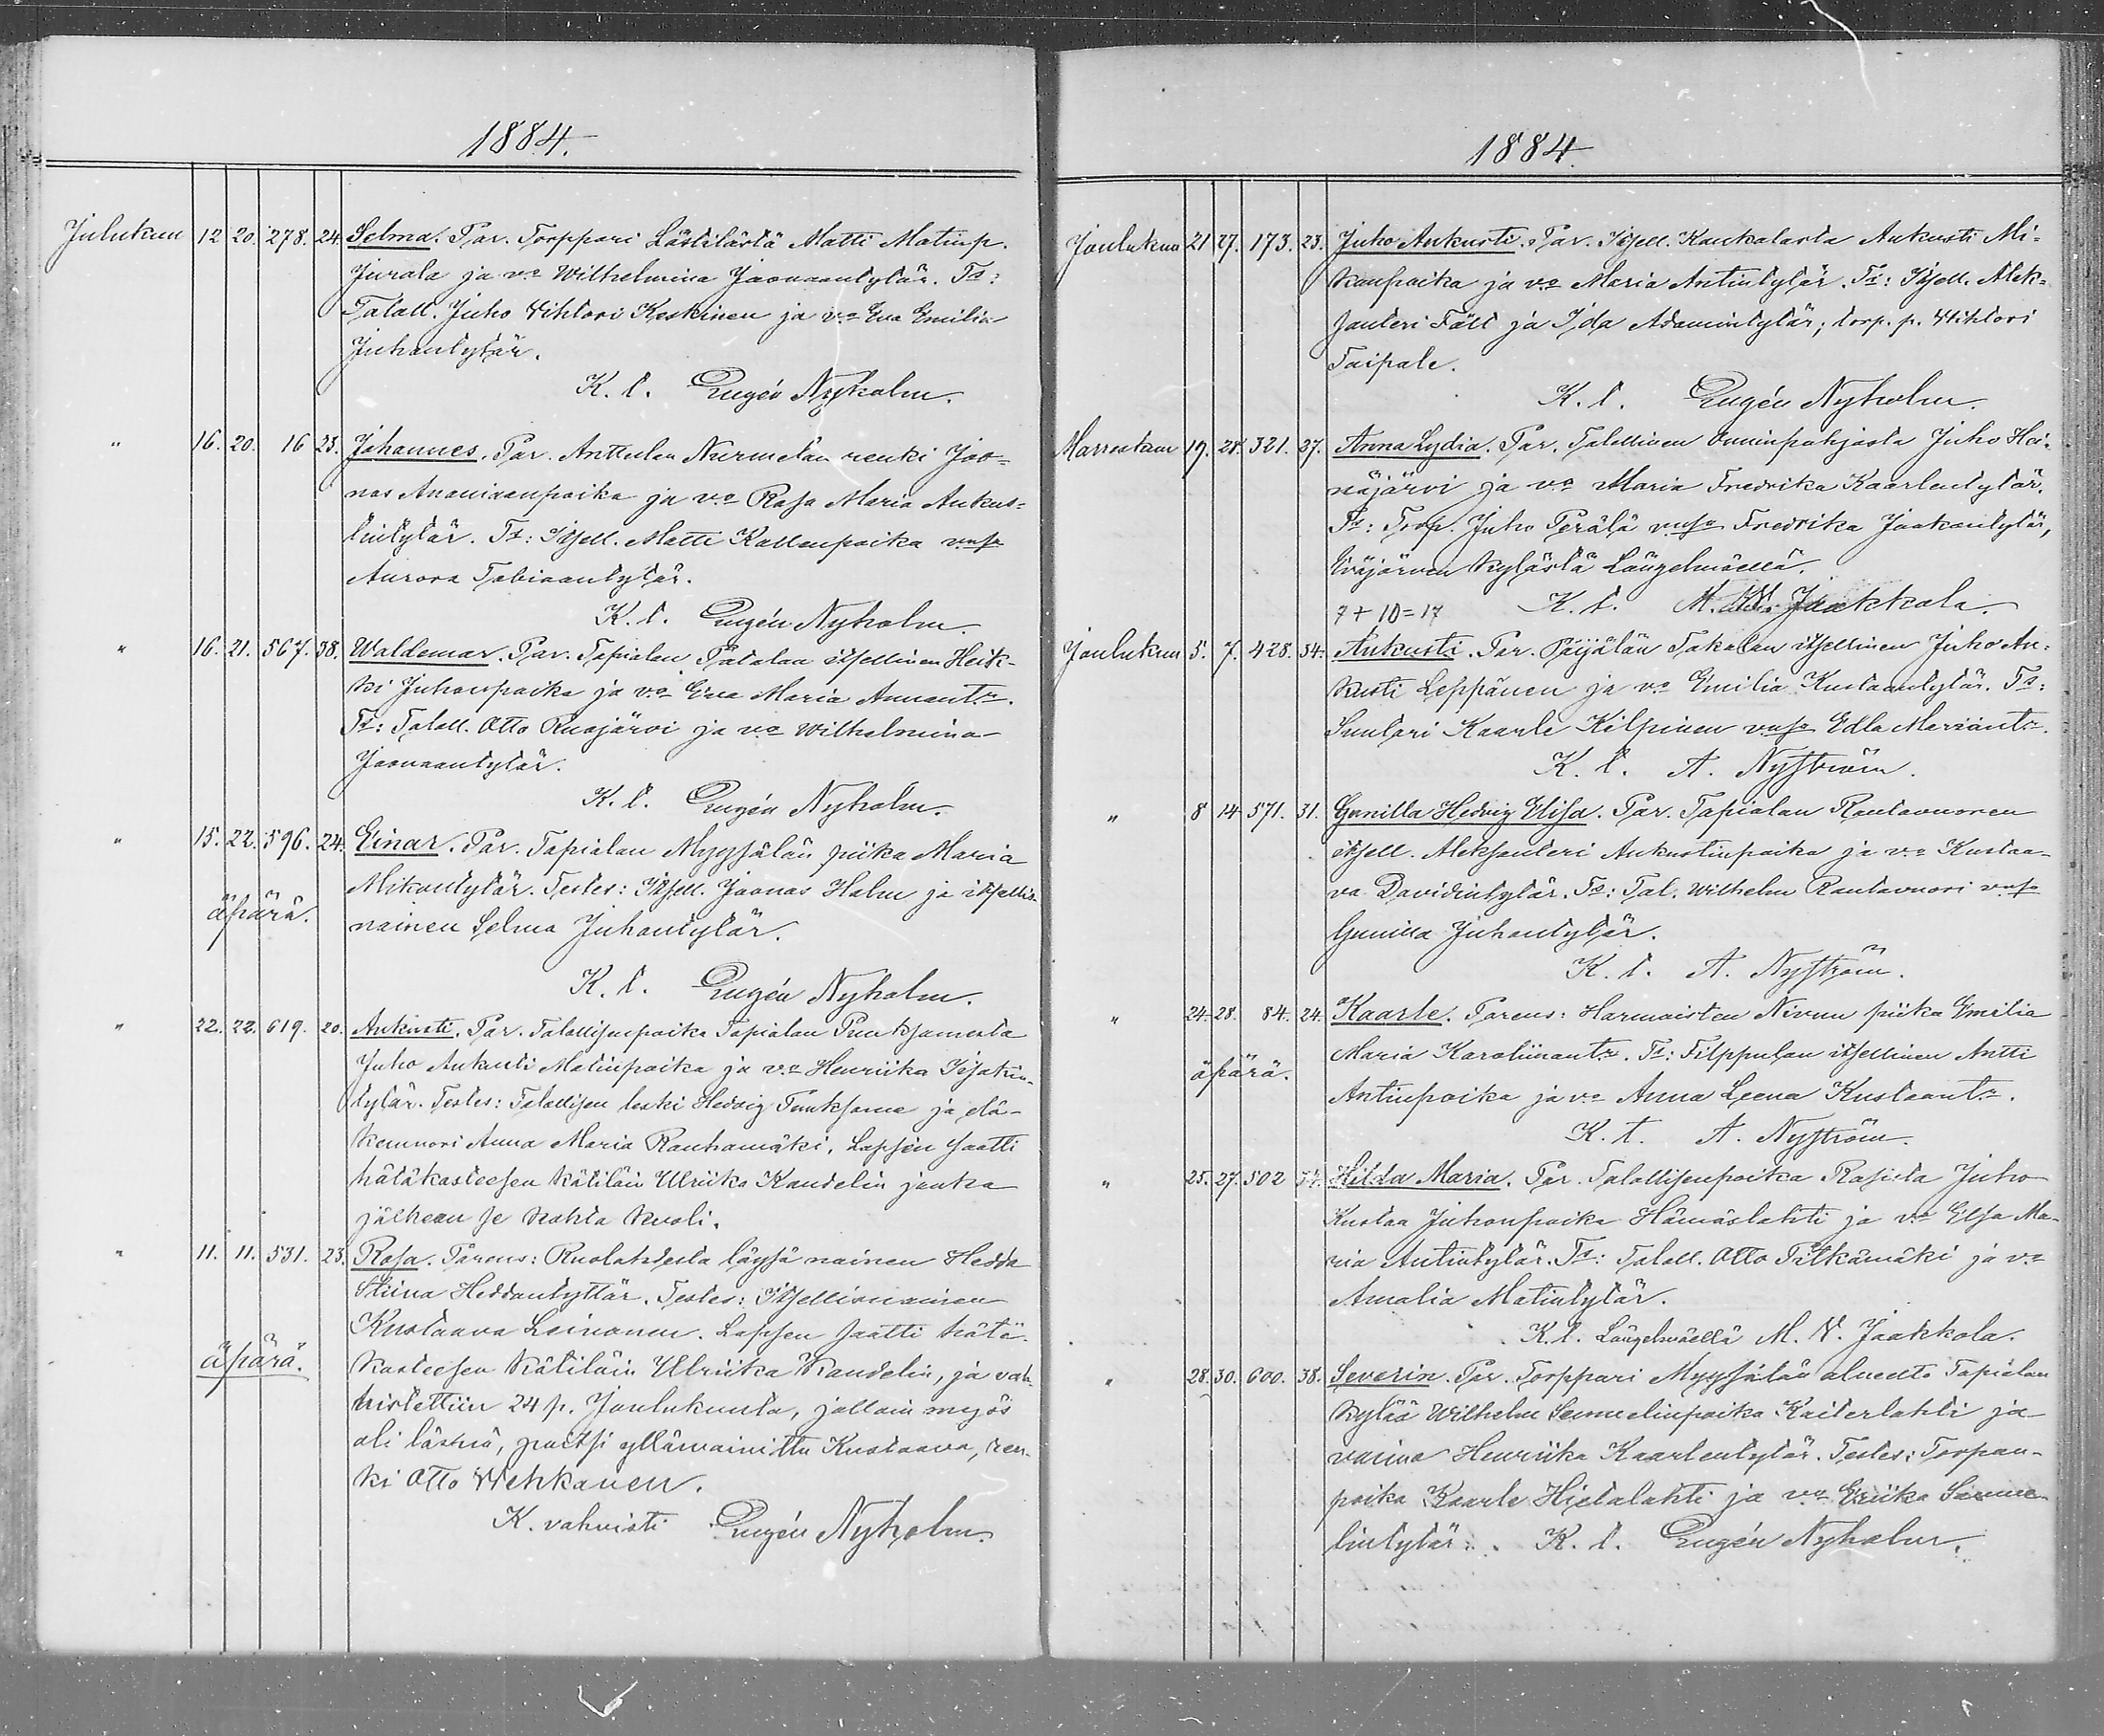 1884.
Julukun 12 20. 278. 24. Selma. Par. Torppari Lästilästä Matti Matinp.
Jurala ja v:o Wilhelmina Joonaantytär. Ts:
Talall. Juho Vihtori Keskinen ja v:o Eva Emilia
Juhantytär.
K. t. Eugén Nyholm.
" 16. 20. 16 23. Johannes. Par. Anttulan Nurmelan renki Joo=
nas Ananiaanpoika ja v:o Rosa Maria Aukus=
tintytär. Ts: Itsell. Matti Kallenpoika v:nsa
Aurora Tobiaantytär.
K. t. Eugén Nyholm.
" 16. 21. 567. 38. Waldemar. Par. Tapialan Patalan itsellinen Heik-
ki Juhonpoika ja v:o Eva Maria Annant:r.
Ts: Talall. Otto Ruojärvi ja v:o Wilhelmina
Joonaantytär.
K. t. Eugén Nyholm.
" 15. 22. 596. 24. Einar. Par. Tapialan Myysälän piika Maria
Mikontytär. Testes: Itsell. Joonas Holm ja itsellis-
äpärä. nainen Selma Juhantytär.
K. t. Eugén Nyholm.
" 22. 22. 619. 20. Aukusti. Par. Talallisenpoika Tapialan Punksamesta
Juho Aukusti Matinpoika ja v:o Henriika Iisakin-
tytär. Testes: Talallisen leski Hedvig Punksame ja elä-
kemuori Anna Maria Rauhamäki. Lapsen saatti
hätäkasteesen kätilöin Ulriika Kandelin jonka
jälkeen se kohta kuoli.
" 11. 11. 531. 23. Rosa. Parens: Ruolahdesta läysä nainen Hedda
Stiina Heddantyttär. Testes: Itsellisnainen
Kustaava Leinonen. Lapsen saatti hätä-
äpärä. kasteesen kätilöin Ulriika Kandelin, ja vah-
vistettiin 24 p. Joulukuuta, jolloin myös
oli läsnä, paitsi yllämainittu Kustaava, ren-
ki Otto Wehkanen.
K. vahvisti Eugén Nyholm.
1884.
Joulukuu 21 27. 173. 23. Juho Aukusti. Par. Itsell. Kaukalasta Aukusti Mi=
konpoika ja v:o Maria Antintytär. Ts: Itsell. Alek=
santeri Fält ja Ida Adamintytär; torp. p. Wihtori
Taipale.
K. t. Eugén Nyholm.
Marraskuu 19. 28. 321. 27. Anna Lydia. Par. Talallinen Unninpohjasta Juho Hei-
näjärvi ja v:o Maria Fredrika Kaarlentytär.
Ts: Torp. Juho Perälä v:nsa Fredrika Jaakontytär,
Eräjärven kylästä Längelmäellä.
7 + 10 = 17 K. t. M. W. Jaakkola.
Joulukuu 5. 7. 428. 34. Aukusti. Par. Päijälän Takalan itsellinen Juho Au-
kusti Leppänen ja v:o Emilia Kustaantytär. Ts:
Suutari Kaarle Kilpinen v:nsa Edla Mariant:r.
K. t. A. Nyström.
" 8 14 571. 31. Gunilla Hedvig Elisa. Par. Tapialan Rautavuoren
itsell. Aleksanteri Aukustinpoika ja v:o Kustaa-
va Davidintytär. Ts: Tal. Wilhelm Rautavuori v:nsa
Gunilla Juhontytär.
K. t. A. Nyström.
" 24. 28. 84. 24. Kaarle. Parens: Harmaisten Nivun piika Emilia
äpärä. Maria Karoliinant:r. Ts: Filppulan itsellinen Antti
Antinpoika ja v:o Anna Leena Kustaant:r.
K. t. A. Nyström.
" 25. 27. 502 54. Hilda Maria. Par. Talallisenpoika Rasista Juho
Kustaa Juhonpoika Hämäslahti ja v:o Elsa Ma-
ria Antintytär. Ts: Talall. Otto Pitkämäki ja v:o
Amalia Matintytär.
K. t. Längelmäellä M. W. Jaakkola.
" 28. 30. 600. 38. Severin. Par. Torppari Myysälän alueelta Tapialan
kylää Wilhelm Samuelinpoika Kaiterlahti ja
vaimo Henriika Kaarlentytär. Testes: Torpan-
poika Kaarle Hietalahti ja v:o Eriika Samue-
lintytär. K. t. Eugén Nyholm.